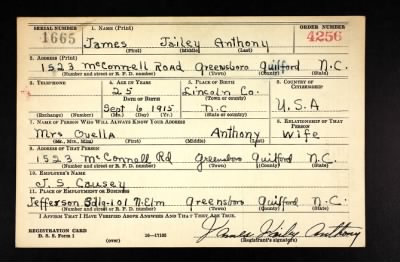 SERIAL NUMBER
1. NAME (Print)
ORDER NUMBER
1665
James Jailey Anthony
4256
(First) (Middle) (Last)
2. ADDRESS (Print)
1523 McConnell Road Greensboro Guilford N.C.
(Number and street or R. F. D. number) (Town) (County) (State)
3. TELEPHONE
4. AGE IN YEARS
5. PLACE OF BIRTH
6. COUNTRY OF CITIZENSHIP
25
Lincoln Co.
DATE OF BIRTH
(Town or county)
Sept 6 1915
N.C
U.S.A
(Exchange) (Number)
(Mo.) (Day) (Yr.)
(State or country)
7. NAME OF PERSON WHO WILL ALWAYS KNOW YOUR ADDRESS
8. RELATIONSHIP OF THAT PERSON
Mrs Ouella Anthony
Wife
(Mr., Mrs., Miss) (First) (Middle) (Last)
9. ADDRESS OF THAT PERSON
1523 McConnell Rd Greensboro Guilford N.C.
(Number and street or R. F. D. number) (Town) (County) (State)
10. EMPLOYER'S NAME
J. S Causey
11. PLACE OF EMPLOYMENT OR BUSINESS
Jefferson Bdlg-101 N. Elm Greensboro Guilford N.C.
(Number and street or R. F. D. number) (Town) (County) (State)
I AFFIRM THAT I HAVE VERIFIED ABOVE ANSWERS AND THAT THEY ARE TRUE.
REGISTRATION CARD
D. S. S. Form 1
16—17105
James Jailey Anthony
(Registrant's signature)